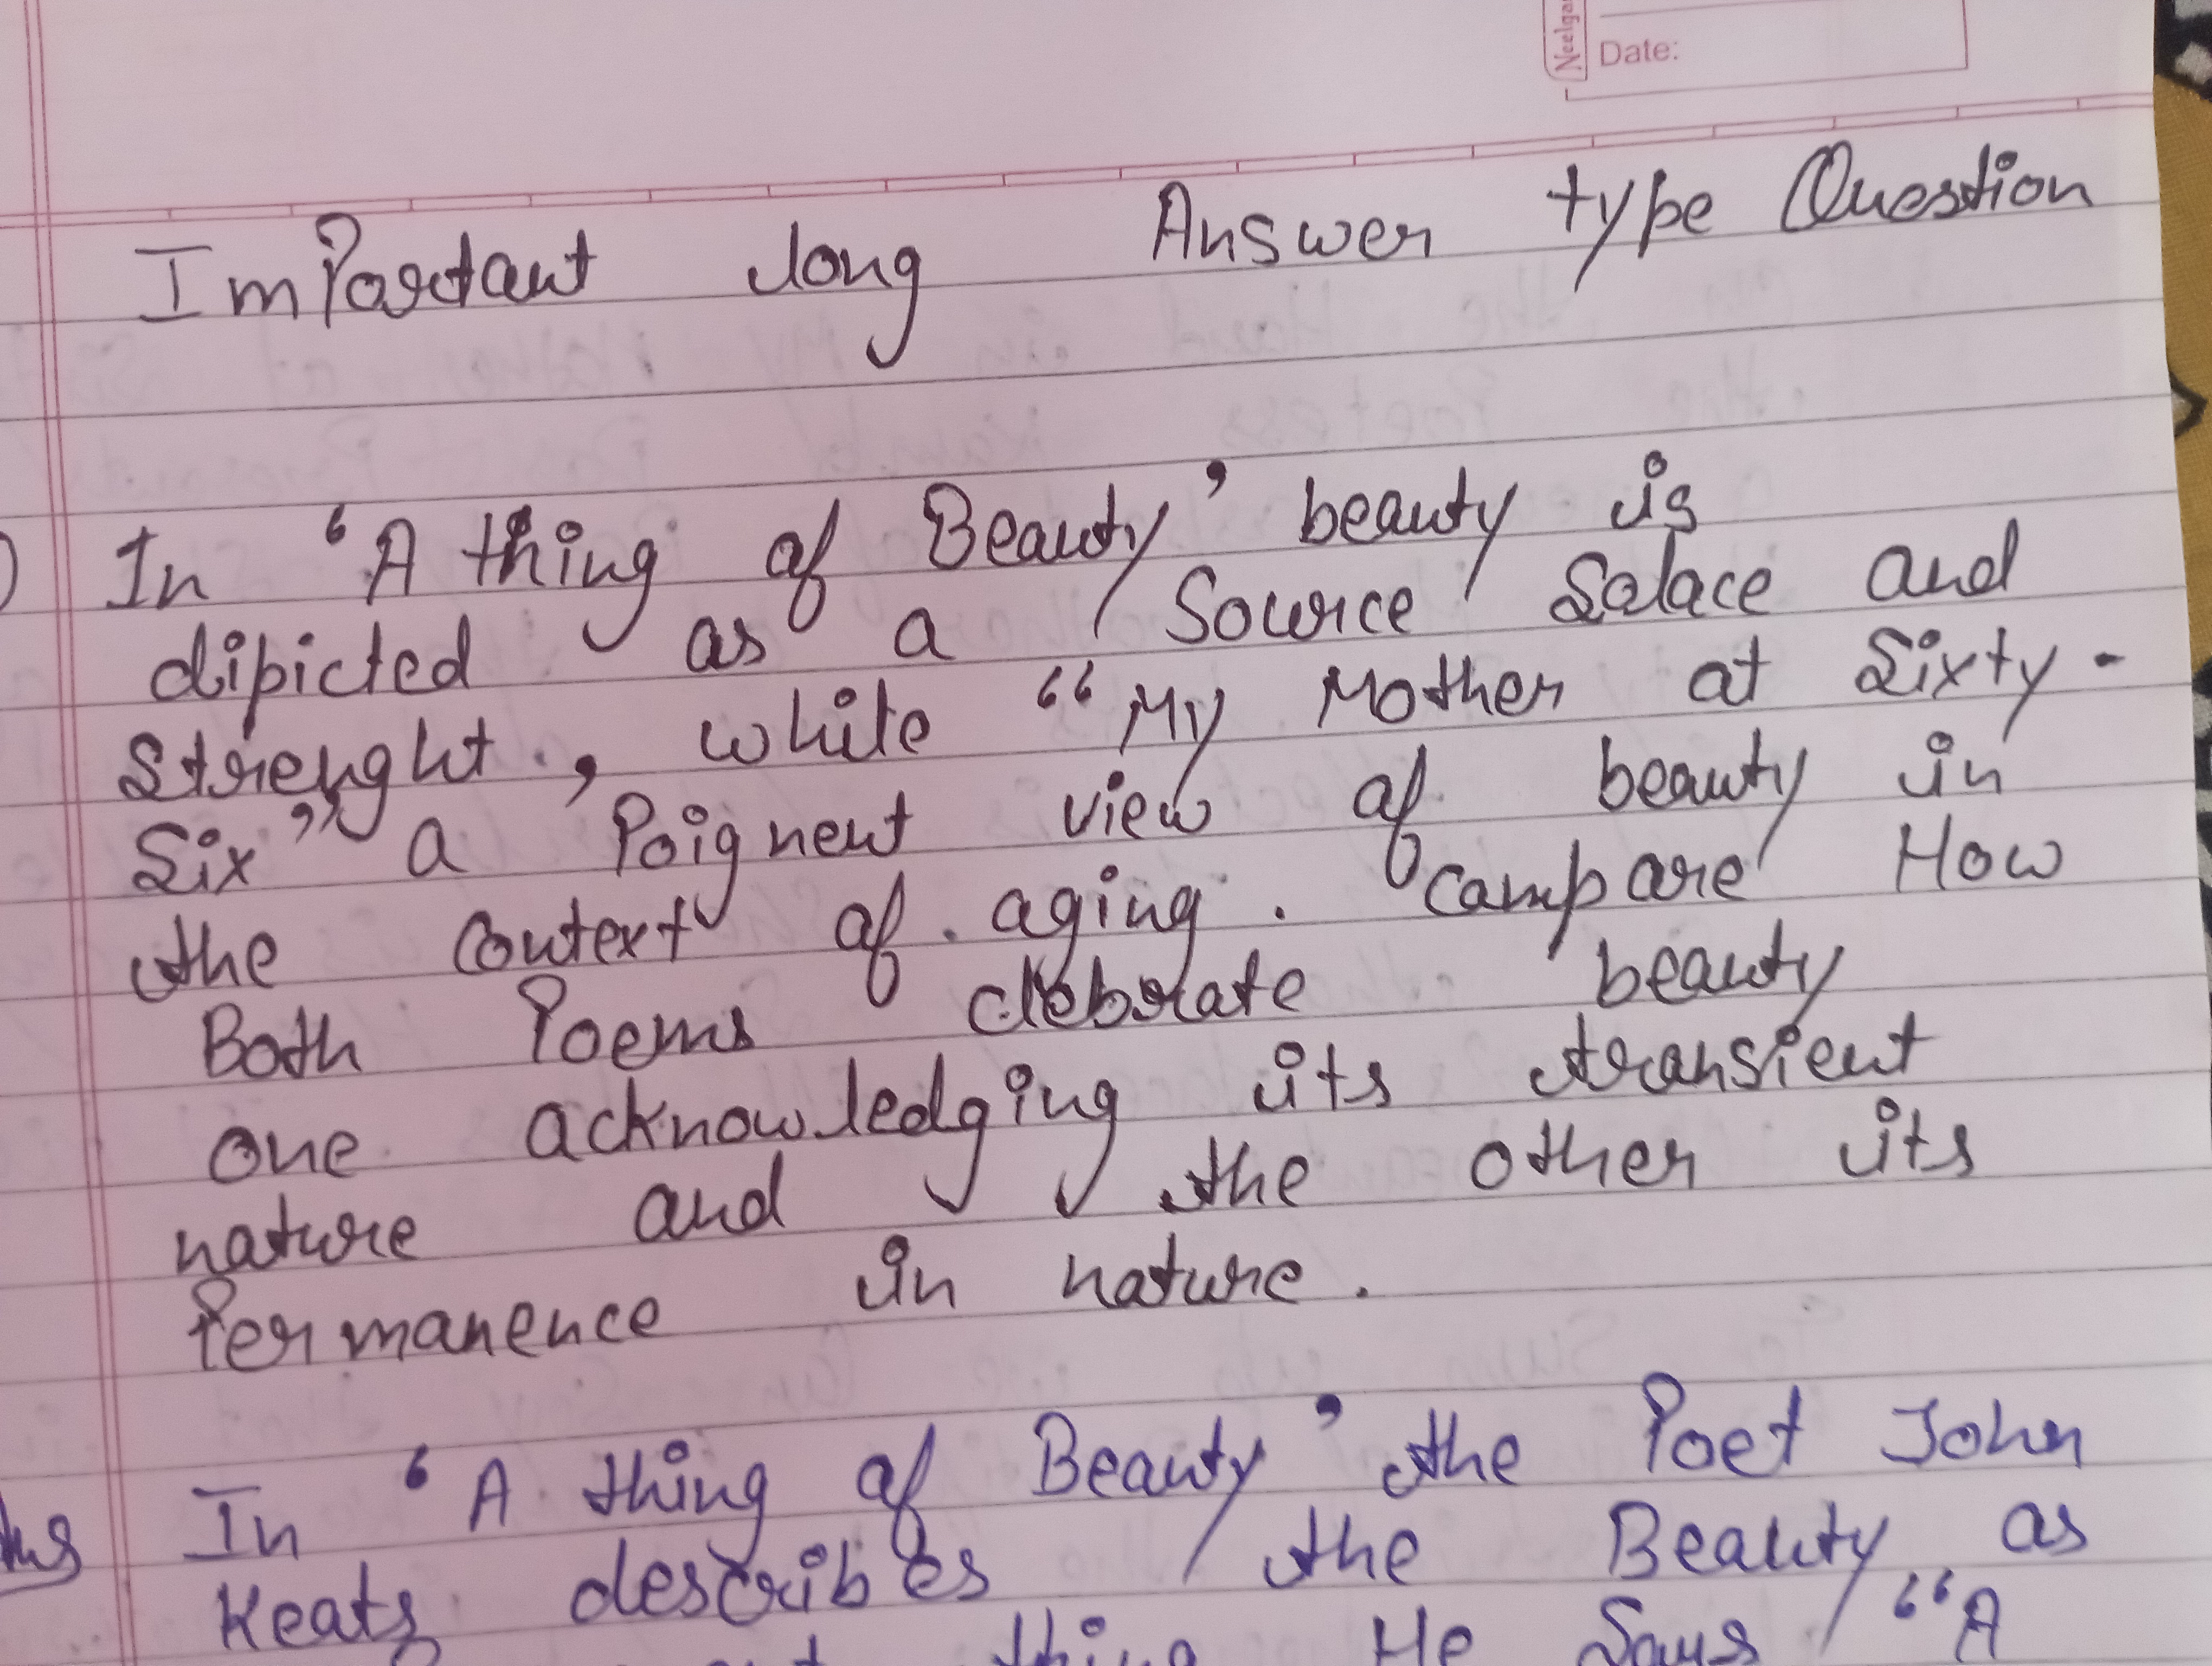 Neelga
Date:
Important long Answer type Question
In ‘A thing of Beauty’ beauty is
dipicted as a source solace and
strenght , while “My Mother at sixty-
six” a poignent view of beauty in
the context of aging. compare How
Both poems clebrate beauty
one acknowledging its transient
nature and the other its
permanence in nature.
Ans
In ‘A thing of Beauty’ the poet John
Keats describes the Beauty as
He says “A